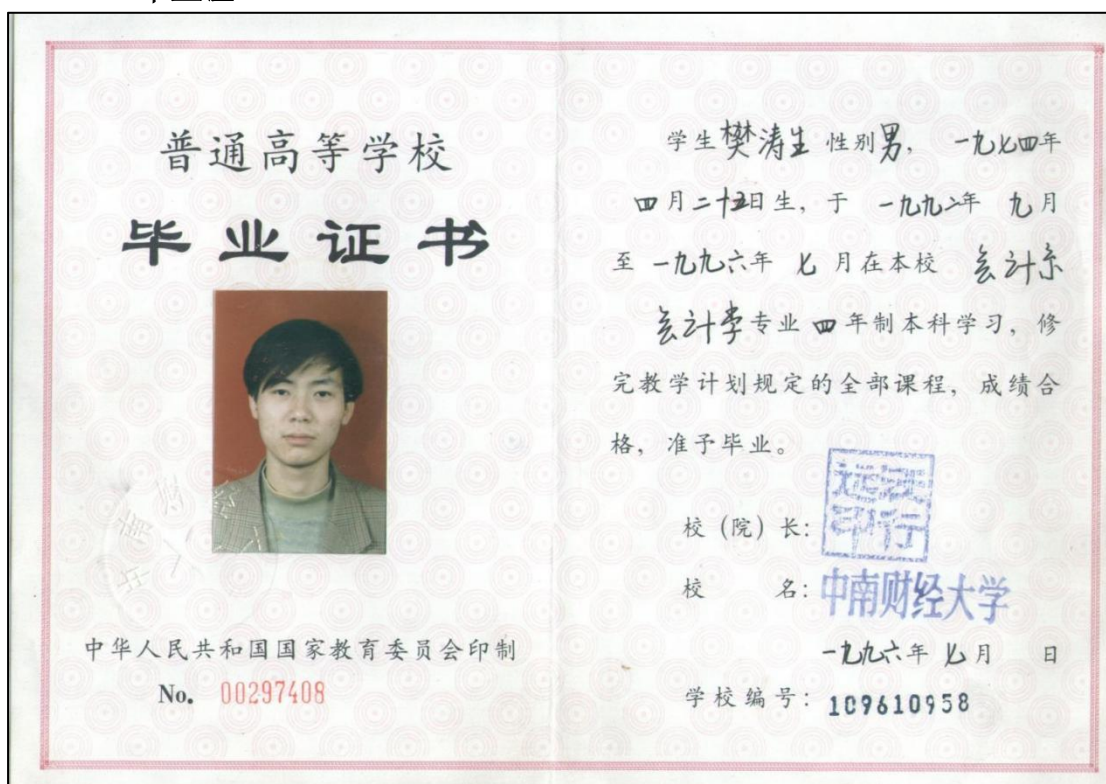 普通高等学校
毕业证书
中华人民共和国国家教育委员会印制
No. 00297408
学生樊涛生 性别男, 一九七四年
四月二十五日生, 于 一九九二年 九月
至 一九九六年 七月在本校 会计系
会计学专业 四 年制本科学习, 修
完教学计划规定的全部课程, 成绩合
格, 准予毕业。
校 (院) 长:
校 名: 中南财经大学
一九九六年 七月 日
学校编号: 109610958